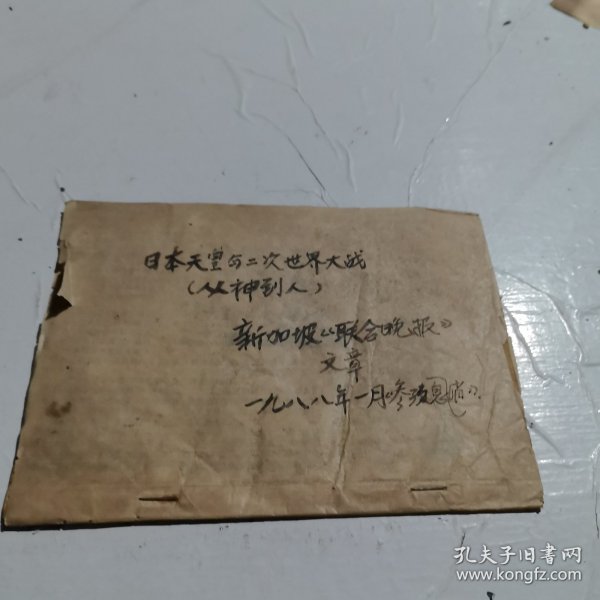 日本天皇与二次世界大战
（从神到人）
新加坡《联合晚报》
文章
一九八八年一月《参考消息》.
孔夫子旧书网
www.kongfz.com